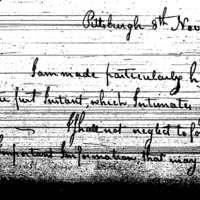 Pittsburgh 8th Nov
I am made particularly h
first Instant, which Intimates
I shall not neglect to fo
Important Information, that may